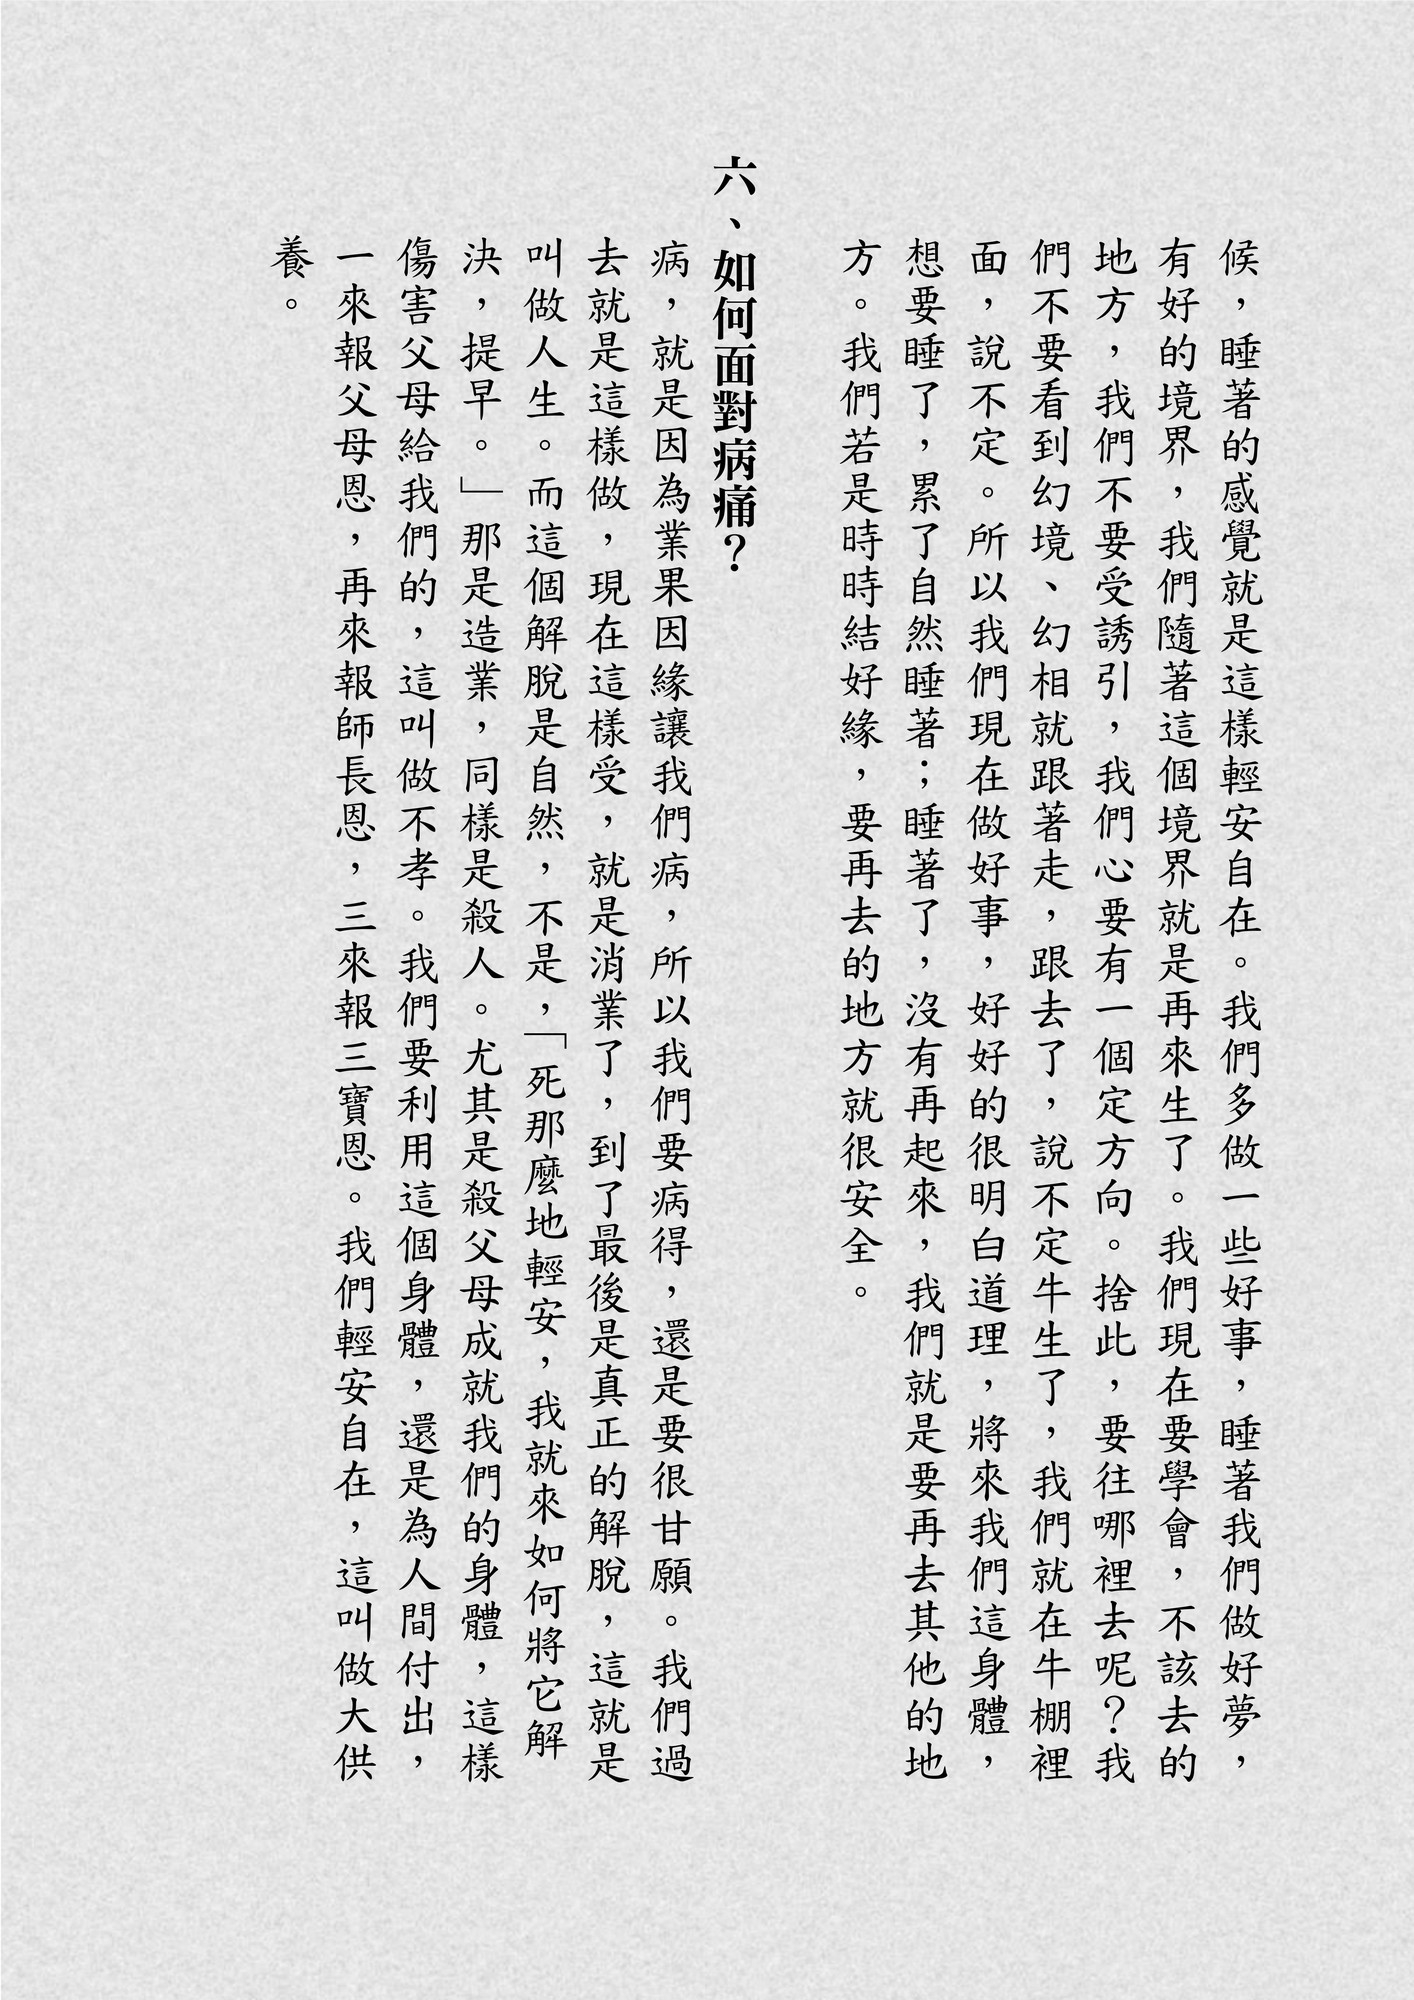 候，睡著的感覺就是這樣輕安自在。我們多做一些好事，睡著我們做好夢，
有好的境界，我們隨著這個境界就是再來生了。我們現在要學會，不該去的
地方，我們不要受誘引，我們心要有一個定方向。捨此，要往哪裡去呢？我
們不要看到幻境、幻相就跟著走，跟去了，說不定牛生了，我們就在牛棚裡
面，說不定。所以我們現在做好事，好好的很明白道理，將來我們這身體，
想要睡了，累了自然睡著；睡著了，沒有再起來，我們就是要再去其他的地
方。我們若是時時結好緣，要再去的地方就很安全。
六、如何面對病痛？
病，就是因為業果因緣讓我們病，所以我們要病得，還是要很甘願。我們過
去就是這樣做，現在這樣受，就是消業了，到了最後是真正的解脫，這就是
叫做人生。而這個解脫是自然，不是，「死那麼地輕安，我就來如何將它解
決，提早。」那是造業，同樣是殺人。尤其是殺父母成就我們的身體，這樣
傷害父母給我們的，這叫做不孝。我們要利用這個身體，還是為人間付出，
一來報父母恩，再來報師長恩，三來報三寶恩。我們輕安自在，這叫做大供
養。